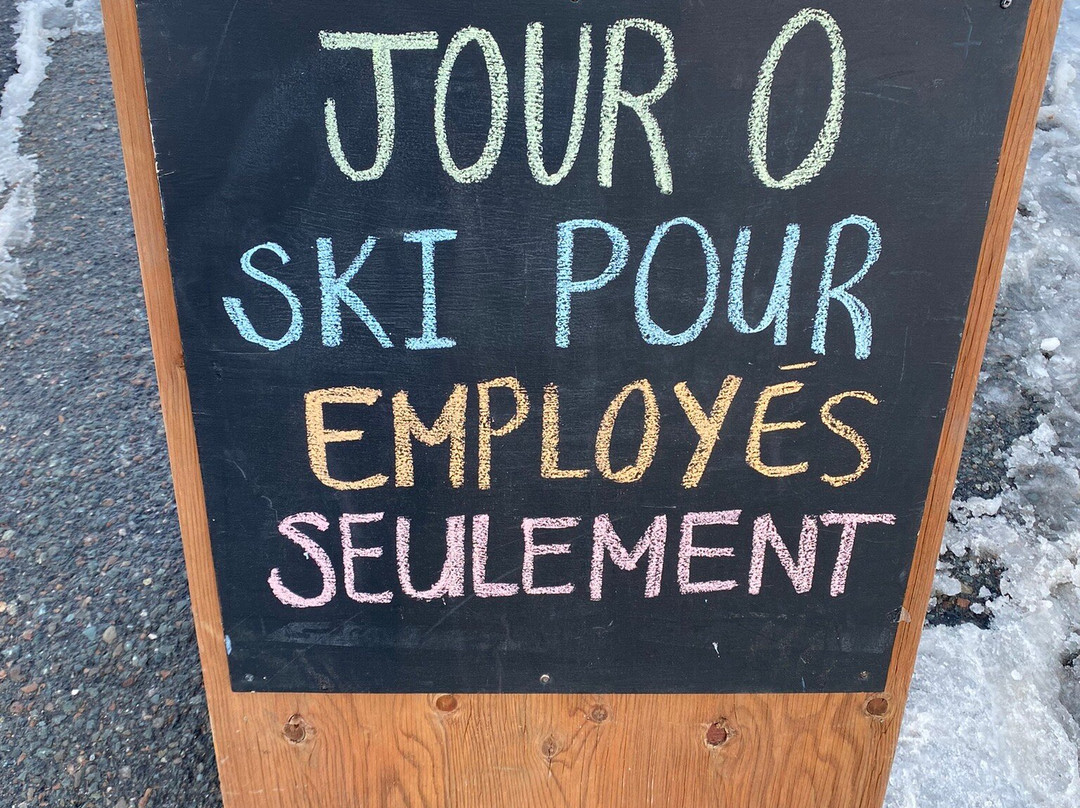 JOUR O
SKI POUR
EMPLOYÉS
SEULEMENT